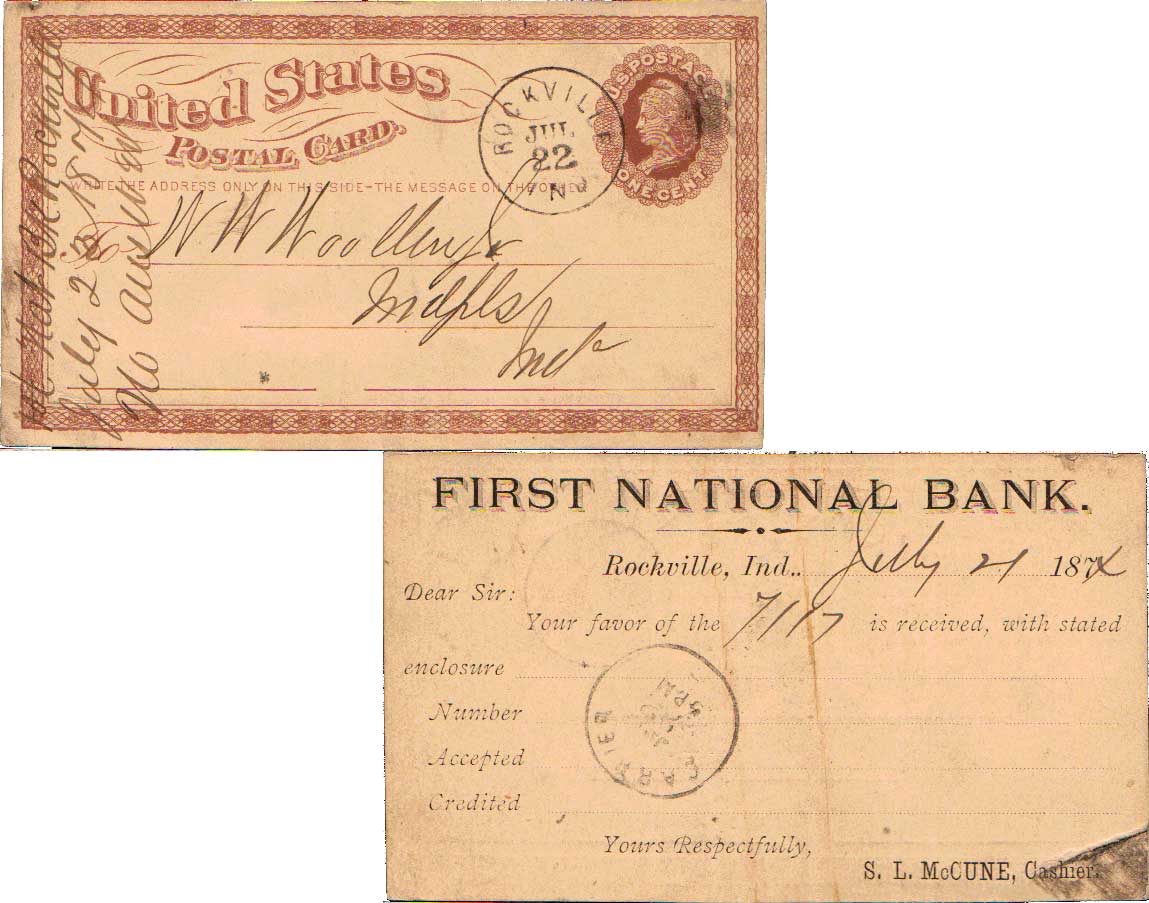 United States
POSTAL CARD.
U.S. POSTAGE
ONE CENT
ROCKVILLE
JUL
22
IND
WRITE THE ADDRESS ONLY ON THIS SIDE-THE MESSAGE ON THE OTHER
To W W Woollen
Indpls
Inda
Nat Bk Rockville
July 23 187
No answer
FIRST NATIONAL BANK.
Rockville, Ind.. July 21 1874
Dear Sir:
Your favor of the 7/17 is received, with stated
enclosure
Number
Accepted
Credited
CARRIER
Yours Respectfully,
S. L. McCUNE, Cashier.